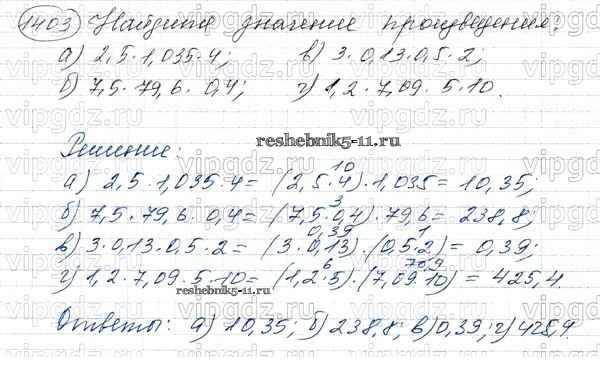 1403 Найдите значение произведения:
а) 2,5·1,035·4; в) 3·0,13·0,5·2;
б) 7,5·79,6·0,4; г) 1,2·7,09·5·10.
reshebnik5-11.ru
Решение:
10
а) 2,5·1,035·4= (2,5·4)·1,035= 10,35;
3
б) 7,5·79,6·0,4= (7,5·0,4)·79,6= 238,8;
0,39 1
в) 3·0,13·0,5·2= (3·0,13)·(0,5·2)= 0,39;
6 70,9
г) 1,2·7,09·5·10= (1,2·5)·(7,09·10)= 425,4
reshebnik5-11.ru
Ответы: а) 10,35; б) 238,8; в) 0,39; г) 425,4.